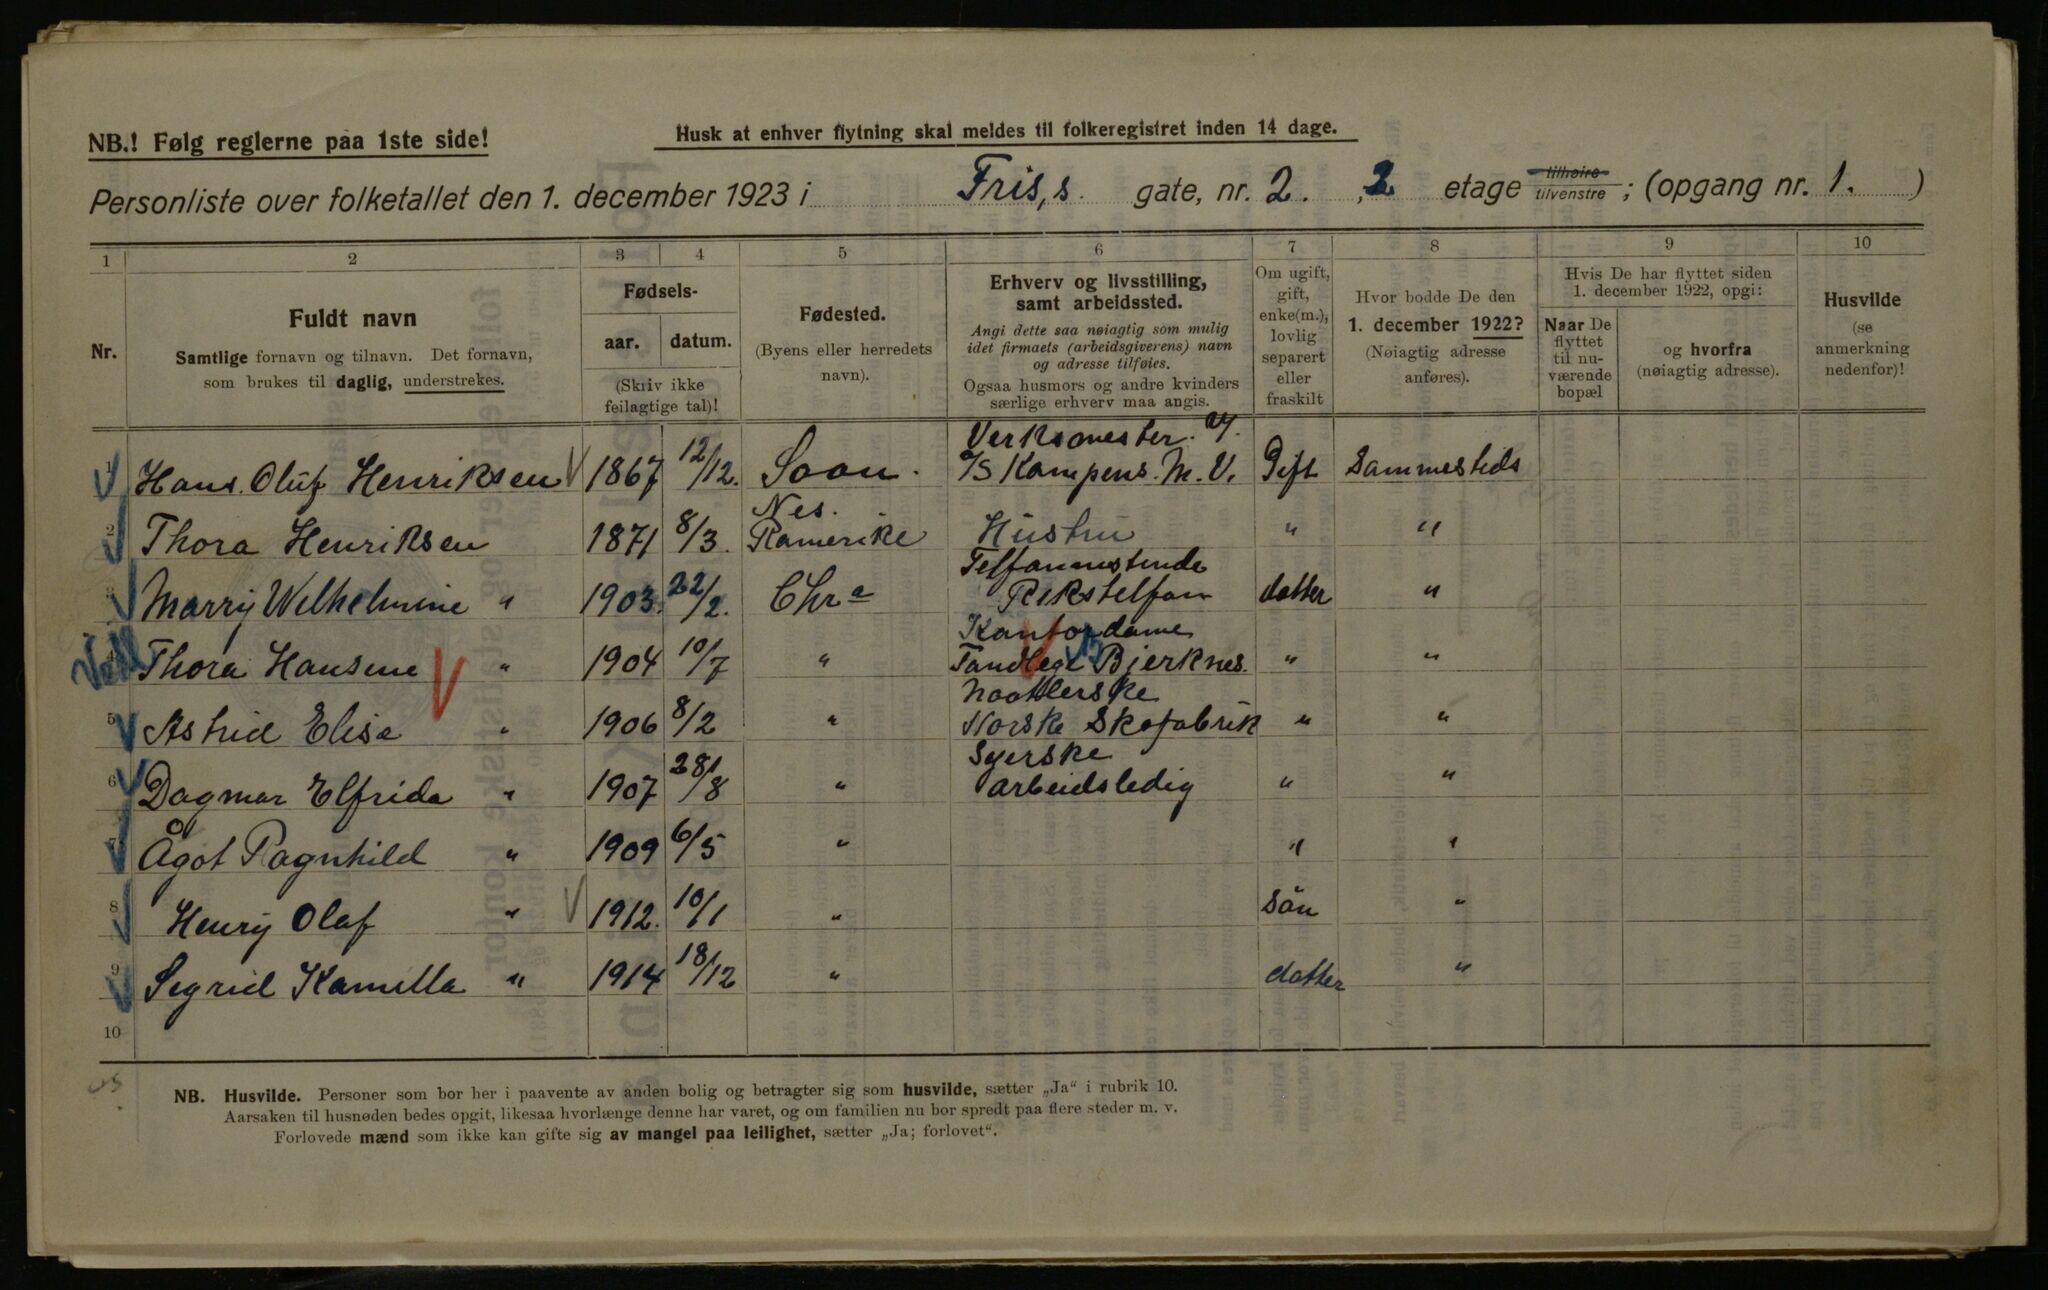 NB.! Følg reglerne paa 1ste side!
Husk at enhver flytning skal meldes til folkeregistret inden 14 dage.
Personliste over folketallet den 1. december 1923 i Fris,s gate, nr. 2. , 2 etage tilhøire/tilvenstre ; (opgang nr. 1. )
1 2 3 4 5 6 7 8 9 10
Nr.
Fuldt navn
Samtlige fornavn og tilnavn. Det fornavn,
som brukes til daglig, understrekes.
Fødsels-
aar. datum.
(Skriv ikke
feilagtige tal)!
Fødested.
(Byens eller herredets
navn).
Erhverv og livsstilling,
samt arbeidssted.
Angi dette saa nøiagtig som mulig
idet firmaets (arbeidsgiverens) navn
og adresse tilføies.
Ogsaa husmors og andre kvinders
særlige erhverv maa angis.
Om ugift,
gift,
enke(m.),
lovlig
separert
eller
fraskilt
Hvor bodde De den
1. december 1922?
(Nøiagtig adresse
anføres).
Hvis De har flyttet siden
1. december 1922, opgi:
Naar De
flyttet
til nu-
værende
bopæl
og hvorfra
(nøiagtig adresse).
Husvilde
(se
anmerkning
nedenfor)!
Verksmester.
1 Hans. Oluf Henriksen 1867 12/12. Soon. A/S Kampens. M. V. Gift Sammesteds
Nes.
2 Thora Henriksen 1871 8/3. Romerike Hustru " "
Telfonnistinde
3 Marry Wilhelmine " 1903. 22/2. Chra Rikstelfon datter "
Kontordame
4 Thora Hansine " 1904 10/7 " Tandlege Bjerknes. " "
Naatlerske
5 Astrid Elise " 1906 8/2 " Norske Skofabrik " "
Syerske
6 Dagmar Elfrida " 1907 28/8 " arbeidsledig " "
7 Ågot Ragnhild " 1909 6/5 " " "
8 Henry Olaf " 1912. 10/1 " Sön "
9 Sigrid Kamilla " 1914 18/12 " datter "
10
NB. Husvilde. Personer som bor her i paavente av anden bolig og betragter sig som husvilde, sætter „Ja“ i rubrik 10.
Aarsaken til husnøden bedes opgit, likesaa hvorlænge denne har varet, og om familien nu bor spredt paa flere steder m. v.
Forlovede mænd som ikke kan gifte sig av mangel paa leilighet, sætter „Ja; forlovet“.